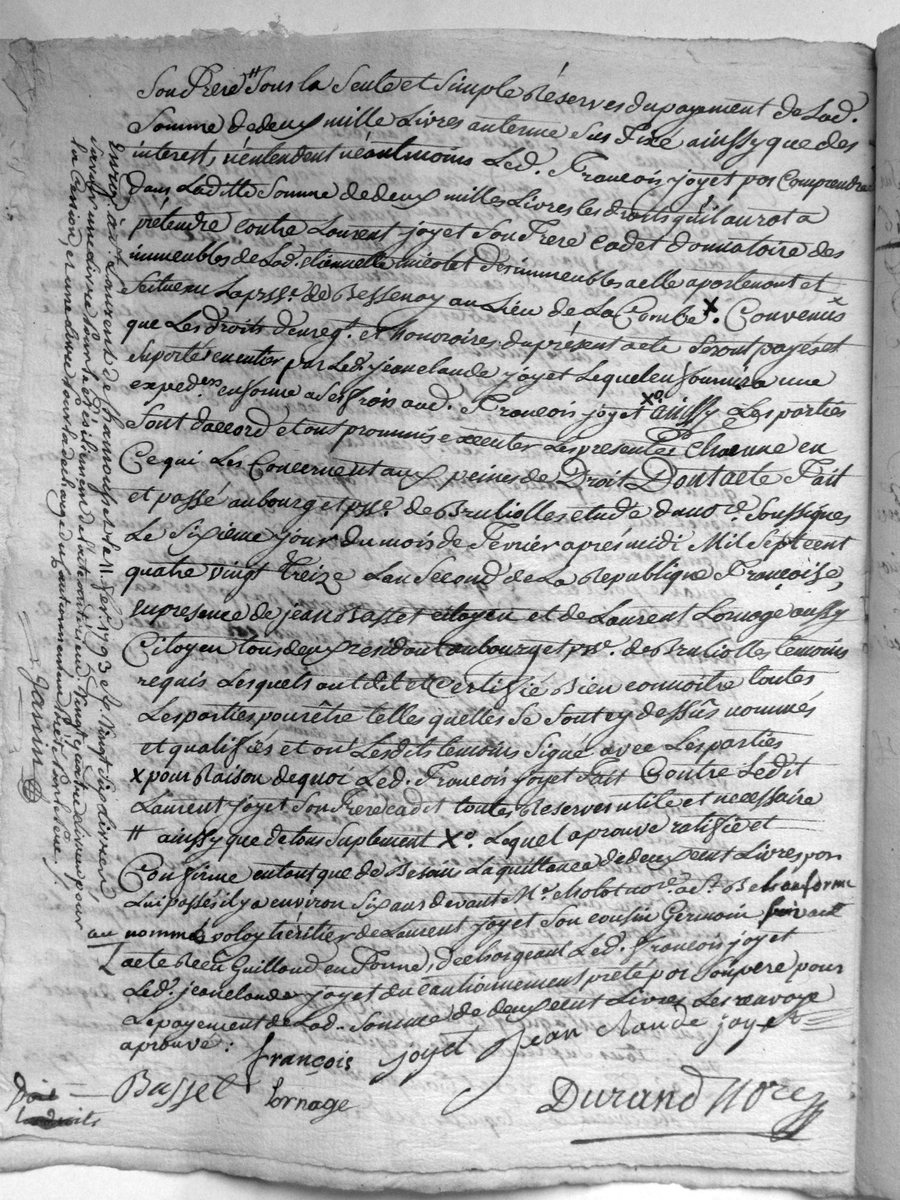 Son frere # Sous la Seule et Simple Réserves du payement de Lad.
Somme de deux mille Livres au terme Sus fixé ainssy que des
interest, n'entendent néantmoins Led. François joyet pas Comprendre
dans Laditte Somme de deux milles Livres les droits qu'il aurat a
prétendre contre Laurent joyet Son frere Cadet donnataire des
immeubles de Lad. nicolet des immeubles a elle apartenont et
Scitué en La prsse. de Bessenay au Lieu de La Combe X. Convenûs
que Les droits d'enregt. et honoraires du présent acte Seront payés et
Suporté en entier par Led. jean claude joyet Lequel en fournira une
expedon. en forme a Ses frois aud. François joyet Xo. ainssy Les parties
Sont d'accord et ont prommis executer Les presentes Chacune en
Ce qui Les Concernent aux peines de Droit Dont acte Fait
et passé au bourg et psse. de Brulliolles etude du nore. Soussignes
Le Sixieme jour du mois de Fevrier après midi Mil Sept cent
quatre vingt treize L'an Second de La République Françoise,
en presence de jean Basset citoyen et de Laurent Lornage aussy
Citoyen tous deux résidant au bourg et psse. de Brullioles temoins
requis Lesquels ont dit et Certifié Bien connoitre toutes
Les parties pour être telles quelles Se Sont cy dessûs nommés
et qualifiés et ont Lesdits temoins Signé avec Les parties
X pour Raison de quoi Led. François joyet Fait Contre Ledit
Laurent joyet Son Frere cadet toutes Reserves utile et necessaire
# ainssy que de tous Suplement Xo. Lequel aprouve ratifie et
Confirme entant que de Besoin La quittance de deux cent Livres par
Lui passés il y a environ Six ans devant Me. nore. a St. Bel
au nommé héritier de Laurent joyet Son cousin Germain suivant
L'acte Reçu Guilloud en forme, dechargeant Led. François joyet
Led. jean claude joyet du cautionnement prété par Son pere pour
Le payement de Lad. Somme de deux cent Livres Les renvoye
aprouvé :
françois joyet Jean claude joyet
Basset Lornage Durand Nore
Enregt. à St. Laurent de Chamousset le 11. fer. 1793. et
la Cession, et une Livre pour la décharge du cautionnement
Janin